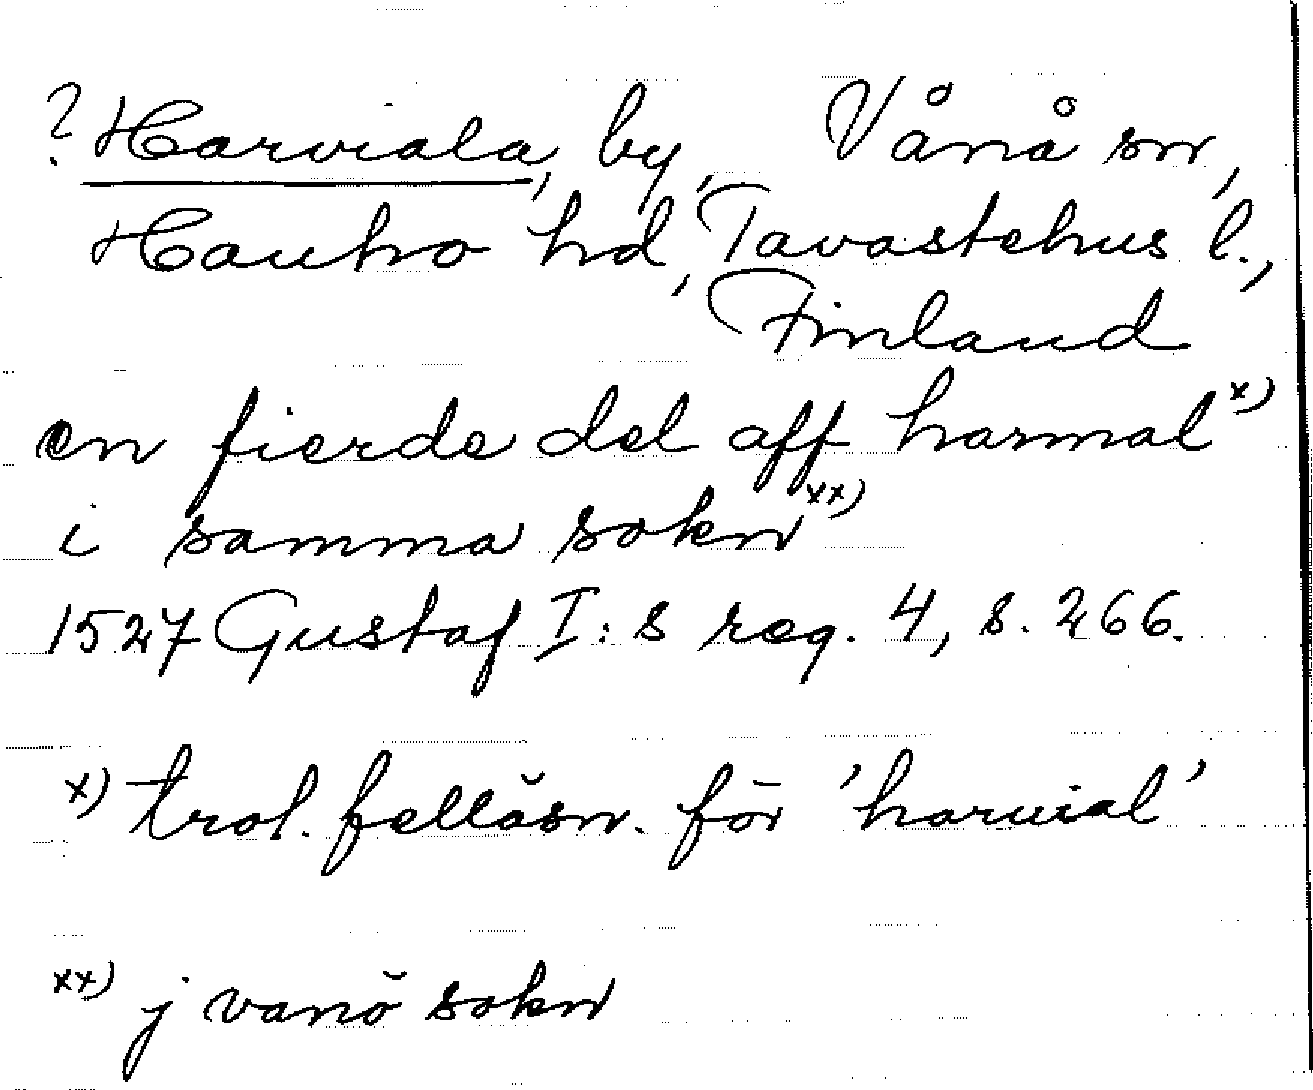 ? Harviala, by, Vånå sn,
Hauho hd, Tavastehus l.,
Finland
en fierde del aff harmal x)
i samma sokn xx)
1527 Gustaf I:s reg. 4, s. 266.
x) trol. felläsn. för 'haruial'
xx) j vanö sokn